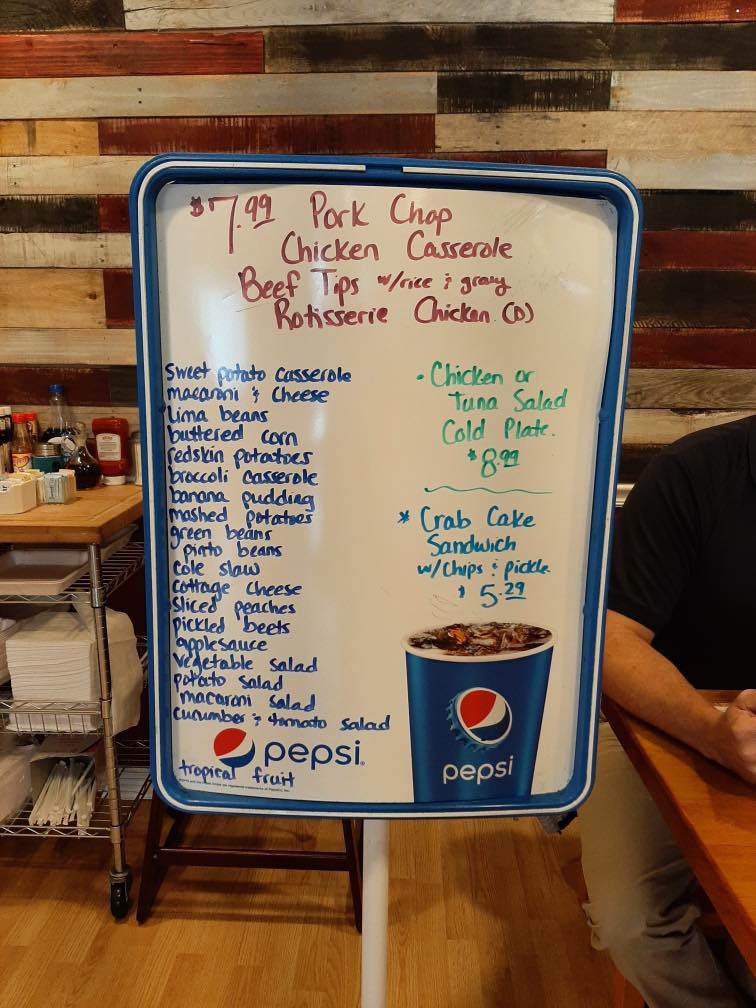 $7.99 Pork Chop
Chicken Casserole
Beef Tips w/rice & gravy
Rotisserie Chicken (D)
sweet potato casserole
macaroni & cheese
lima beans
buttered corn
redskin potatoes
broccoli casserole
banana pudding
mashed potatoes
green beans
pinto beans
cole slaw
cottage cheese
sliced peaches
pickled beets
applesauce
vegetable salad
potato salad
macaroni salad
cucumber & tomato salad
pepsi
tropical fruit
• Chicken or
Tuna Salad
Cold Plate.
$8.99
* Crab Cake
Sandwich
w/chips & pickle
$5.29
pepsi